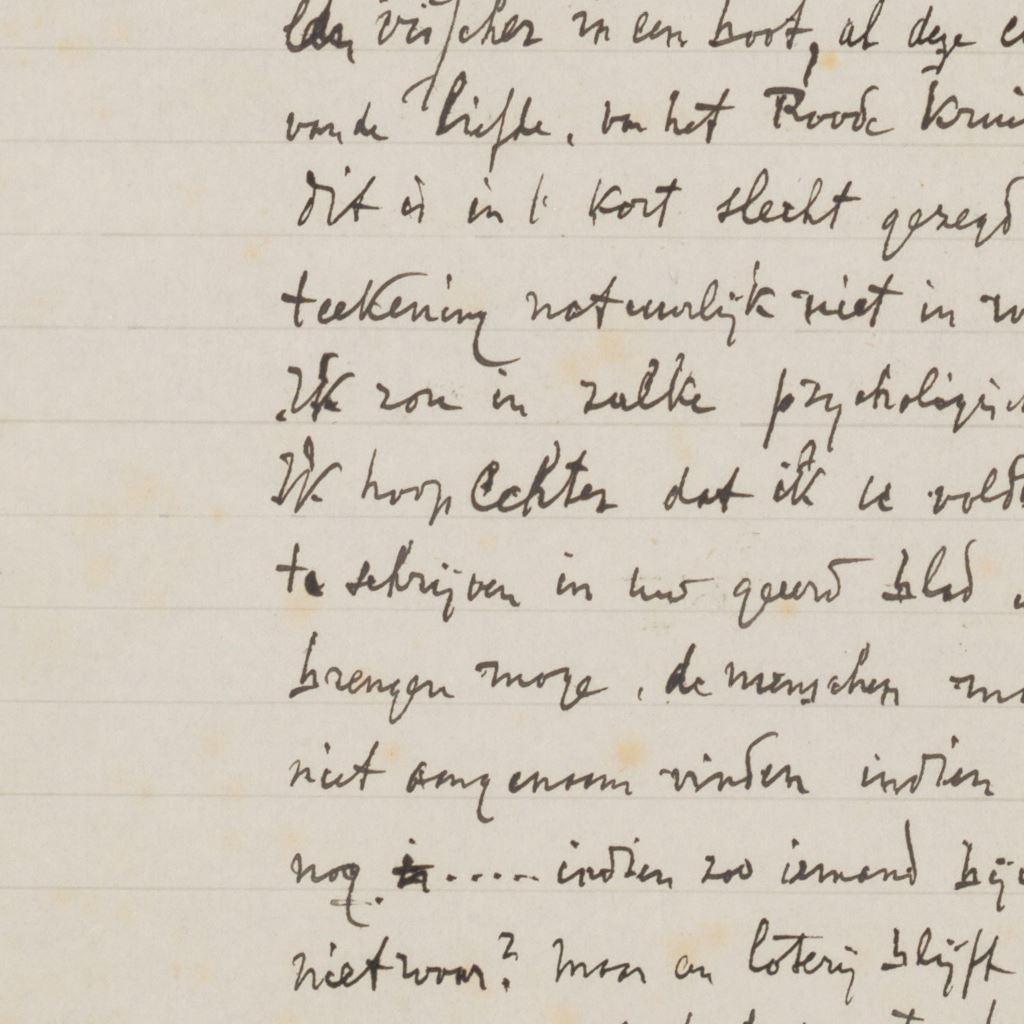 een visscher in een boot, al deze
van de liefde, van het Roode Krui
dit is in 't kort slecht gezegd
teekening natuurlijk niet in
Ik zou in zulke psychologisc
Ik hoop echter dat ik u vold
te schrijven in uw geeerd blad
brengen moge, de menschen
niet aangenaam vinden indien
nog is..... indien zoo iemand bij
niet waar? maar en loterij blijft